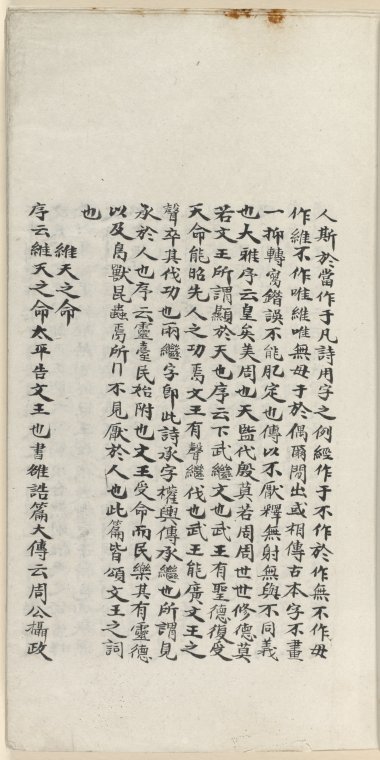 人斯於當作于凡詩用字之例經作于不作於作無不作毋
作維不作唯維唯無毋于於偶爾閒出或相傳古本字不畫
一抑轉寫錯誤不能肊定也傳以不厭釋無射無與不同義
也大雅序云皇矣美周也天監代殷莫若周周世世修德莫
若文王所謂顯於天也序云下武繼文也武王有聖德復受
天命能昭先人之功焉文王有聲繼伐也武王能廣文王之
聲卒其伐功也兩繼字卽此詩承字權輿傳承繼也所謂見
承於人也序云靈臺民始附也文王受命而民樂其有靈德
以及鳥獸昆蟲焉所㠯不見厭於人也此篇皆頌文王之詞
也
維天之命
序云維天之命太平告文王也書雒誥篇大傳云周公攝政